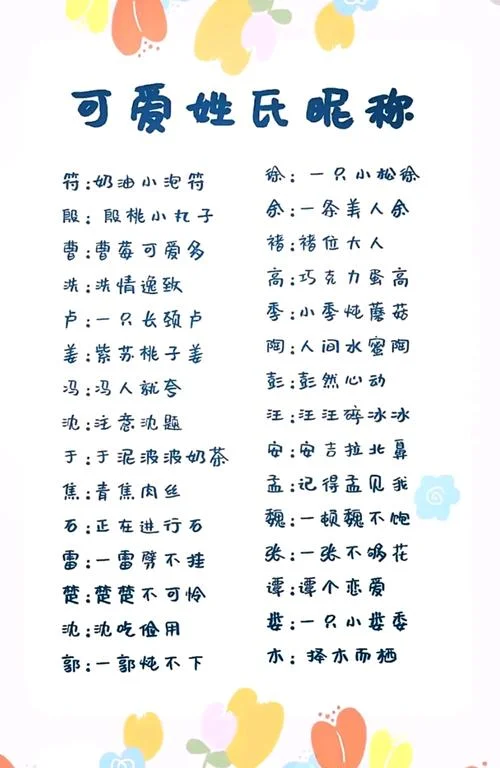 可爱姓氏昵称
符:奶油小泡符
殷:殷桃小丸子
曹:曹莓可爱多
冼:冼情逸致
卢:一只长颈卢
姜:紫苏桃子姜
冯:冯人就夸
沈:注意沈题
于:于泥波波奶茶
焦:青焦肉丝
石:正在进行石
雷:一雷劈不挂
楚:楚楚不可怜
沈:沈吃俭用
郭:一郭炖不下
徐:一只小松徐
余:一条美人余
褚:褚位大人
高:巧克力蛋高
季:小季炖蘑菇
陶:人间水蜜陶
彭:彭然心动
汪:汪汪碎冰冰
安:安吉拉北鼻
孟:记得孟见我
魏:一顿魏不饱
张:一张不够花
谭:谭个恋爱
娄:一只小娄委
木:择木而栖